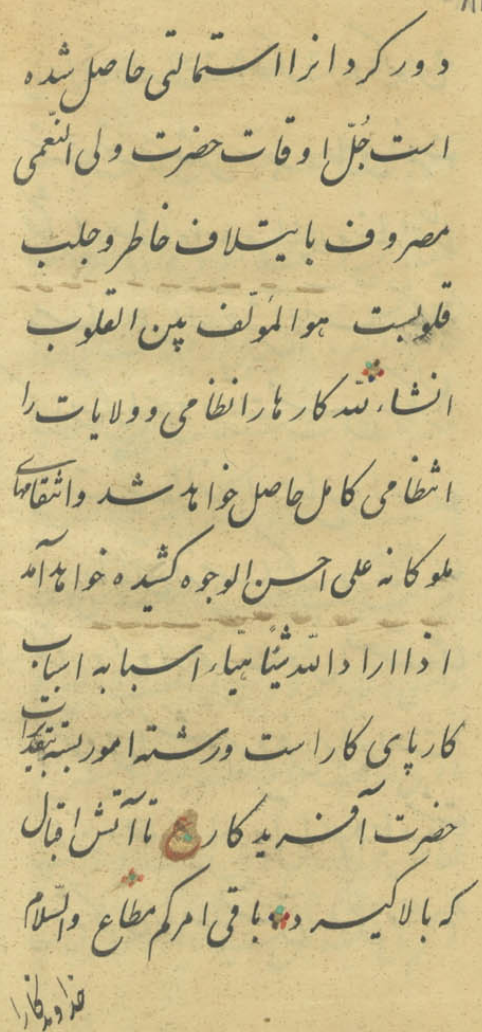 دور کرد انرا استمالتی حاصل شده
است جُلّ اوقات حضرت ولی النّعمی
مصروف بایتلاف خاطر و جلب
قلوبست هو المؤلّف بین القلوب
انشاءلله کارها را نظامی و ولایات را
انتظامی کامل حاصل خواهد شد و انتقامهای
ملوکانه علی احسن الوجوه کشیده خواهد آمد
اذا اراد الله شیئاً هیّاء اسبابه اسباب
کارپای کار است و رشته امور بسته بتقدیرات
حضرت آفریدگار ع تا آتش اقبال
که بالا گیرد باقی امرکم مطاع والسّلام
خداوندگارا